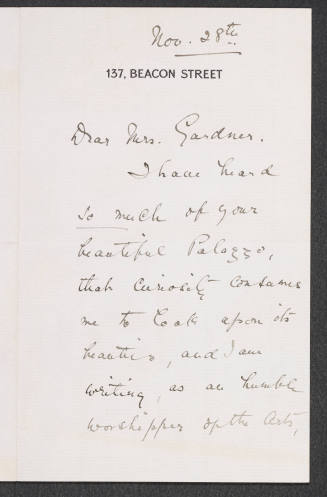 Nov. 28th
137, BEACON STREET
Dear Mrs. Gardner.
I have heard
so much of your
beautiful Palazzo,
that curiosity consumes
me to look upon its
beauties, and I am
writing, as an humble
worshipper of the Arts,